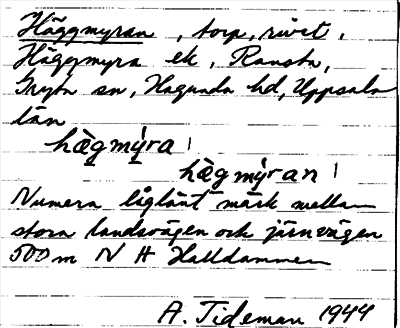 Häggmyran, torp, rivet,
Häggmyra ek, Ransta,
Gryta sn, Hagunda hd, Uppsala
län
hàgmýra
hàgmýran
Numera låglänt mark mellan
stora landsvägen och järnvägen
500 m N H Halldammen
A. Tideman 1944